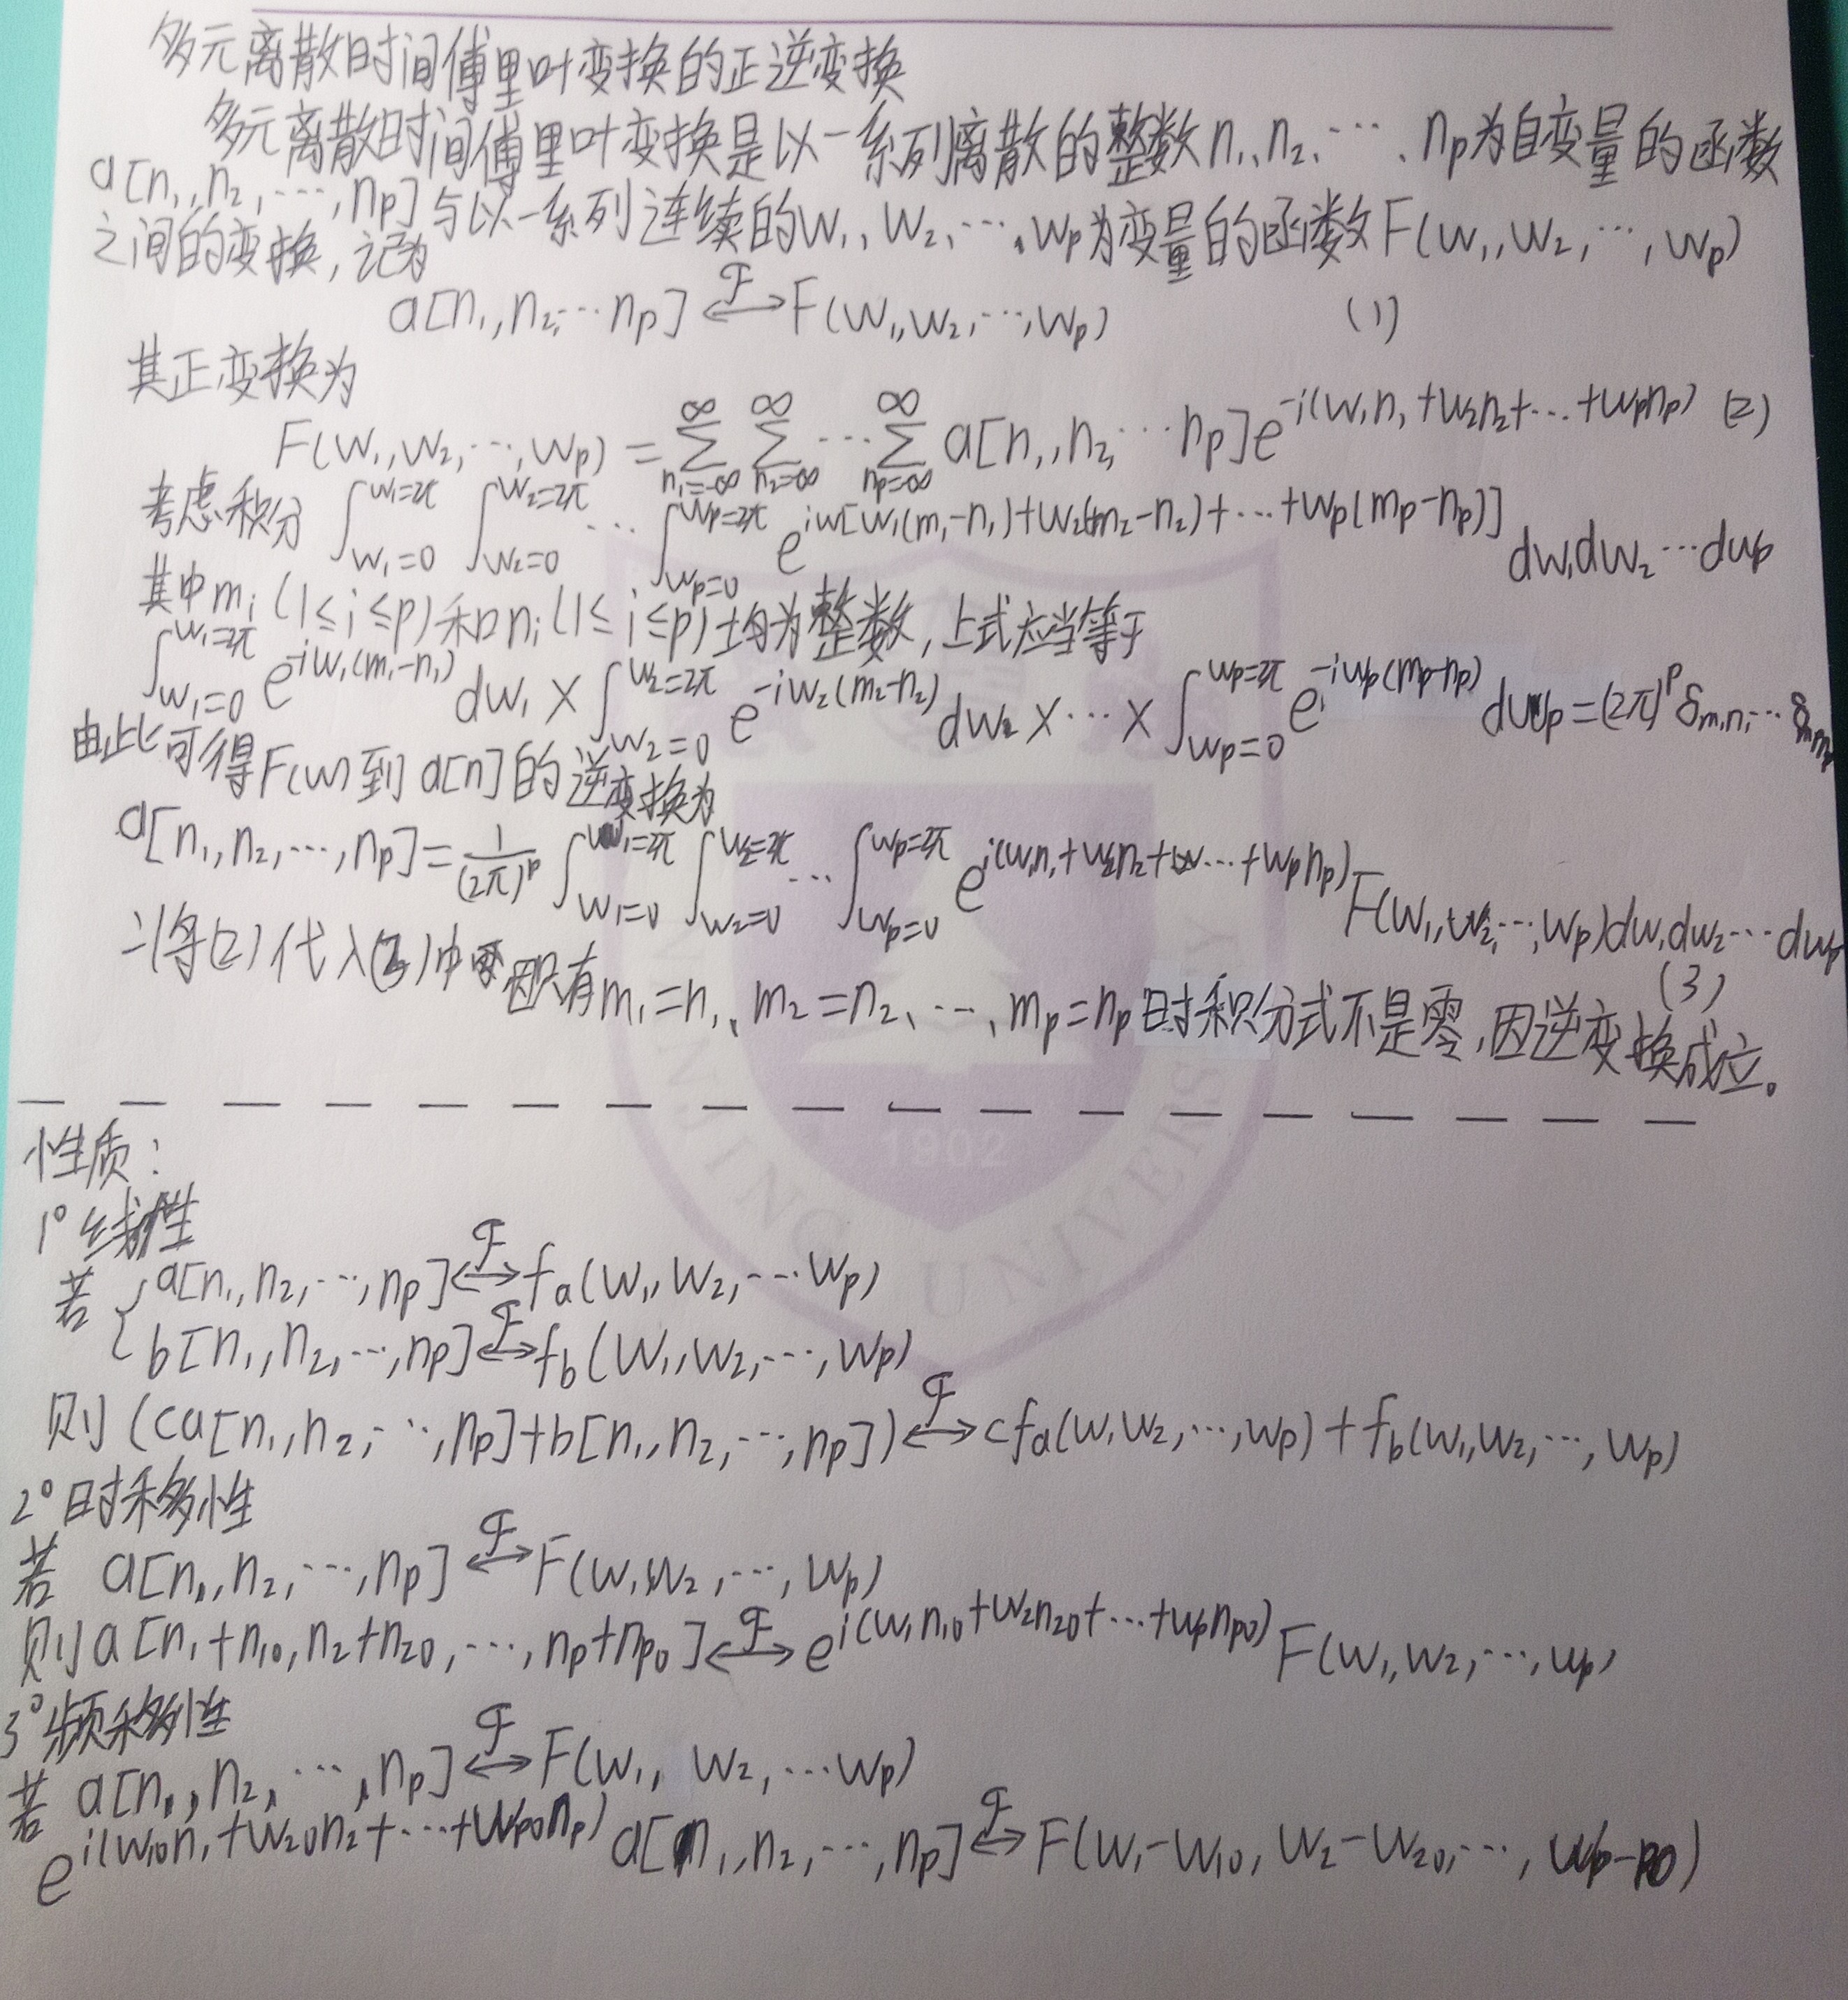 多元离散时间傅里叶变换的正逆变换
多元离散时间傅里叶变换是以一系列离散的整数n₁、n₂、…、nₚ为自变量的函数
a[n₁,n₂,…,nₚ]与以一系列连续的w₁,w₂,…,wₚ为变量的函数F(w₁,w₂,…,wₚ)
之间的变换,记为
a[n₁,n₂,…nₚ] ℱ⟷ F(w₁,w₂,…,wₚ) (1)
其正变换为
F(w₁,w₂,…,wₚ) = ∑_{n₁=-∞}^{∞} ∑_{n₂=∞}^{∞} … ∑_{nₚ=∞}^{∞} a[n₁,n₂,…nₚ]e^{-i(w₁n₁+w₂n₂+…+wₚnₚ)} (2)
考虑积分 ∫_{w₁=0}^{w₁=2π} ∫_{w₂=0}^{w₂=2π} … ∫_{wₚ=0}^{wₚ=2π} e^{iw[w₁(m₁-n₁)+w₂(m₂-n₂)+…+wₚ(mₚ-nₚ)]} dw₁dw₂…dwₚ
其中mᵢ(1≤i≤p)和nᵢ(1≤i≤p)均为整数,上式应当等于
∫_{w₁=0}^{w₁=2π} e^{-iw₁(m₁-n₁)} dw₁ × ∫_{w₂=0}^{w₂=2π} e^{-iw₂(m₂-n₂)} dw₂ × … × ∫_{wₚ=0}^{wₚ=2π} e^{-iwₚ(mₚ-nₚ)} dwₚ = (2π)^p δ_{m₁n₁}…
由此可得F(w)到a[n]的逆变换为
a[n₁,n₂,…,nₚ] = 1/(2π)^p ∫_{w₁=0}^{w₁=2π} ∫_{w₂=0}^{w₂=2π} … ∫_{wₚ=0}^{wₚ=2π} e^{i(w₁n₁+w₂n₂+…+wₚnₚ)} F(w₁,w₂,…,wₚ)dw₁dw₂…dwₚ
(3)
∵将(2)代入(3)中 因只有m₁=n₁、m₂=n₂、…、mₚ=nₚ时积分式不是零,因逆变换成立。
性质:
1°线性
若 { a[n₁,n₂,…,nₚ] ℱ⟷ fₐ(w₁,w₂,…wₚ)
b[n₁,n₂,…,nₚ] ℱ⟷ f_b(w₁,w₂,…,wₚ)
则(ca[n₁,n₂,…,nₚ]+b[n₁,n₂,…,nₚ]) ℱ⟷ cfₐ(w₁w₂,…,wₚ)+f_b(w₁,w₂,…,wₚ)
2°时移性
若 a[n₁,n₂,…,nₚ] ℱ⟷ F(w₁,w₂,…,wₚ)
则a[n₁+n₁₀,n₂+n₂₀,…,nₚ+nₚ₀] ℱ⟷ e^{i(w₁n₁₀+w₂n₂₀+…+wₚnₚ₀)} F(w₁,w₂,…,wₚ)
3°频移性
若 a[n₁,n₂,…,nₚ] ℱ⟷ F(w₁, w₂,…wₚ)
e^{i(w₁₀n₁+w₂₀n₂+…+wₚ₀nₚ)} a[n₁,n₂,…,nₚ] ℱ⟷ F(w₁-w₁₀,w₂-w₂₀,…,wₚ-ₚ₀)
1902
NANJING UNIVERSITY